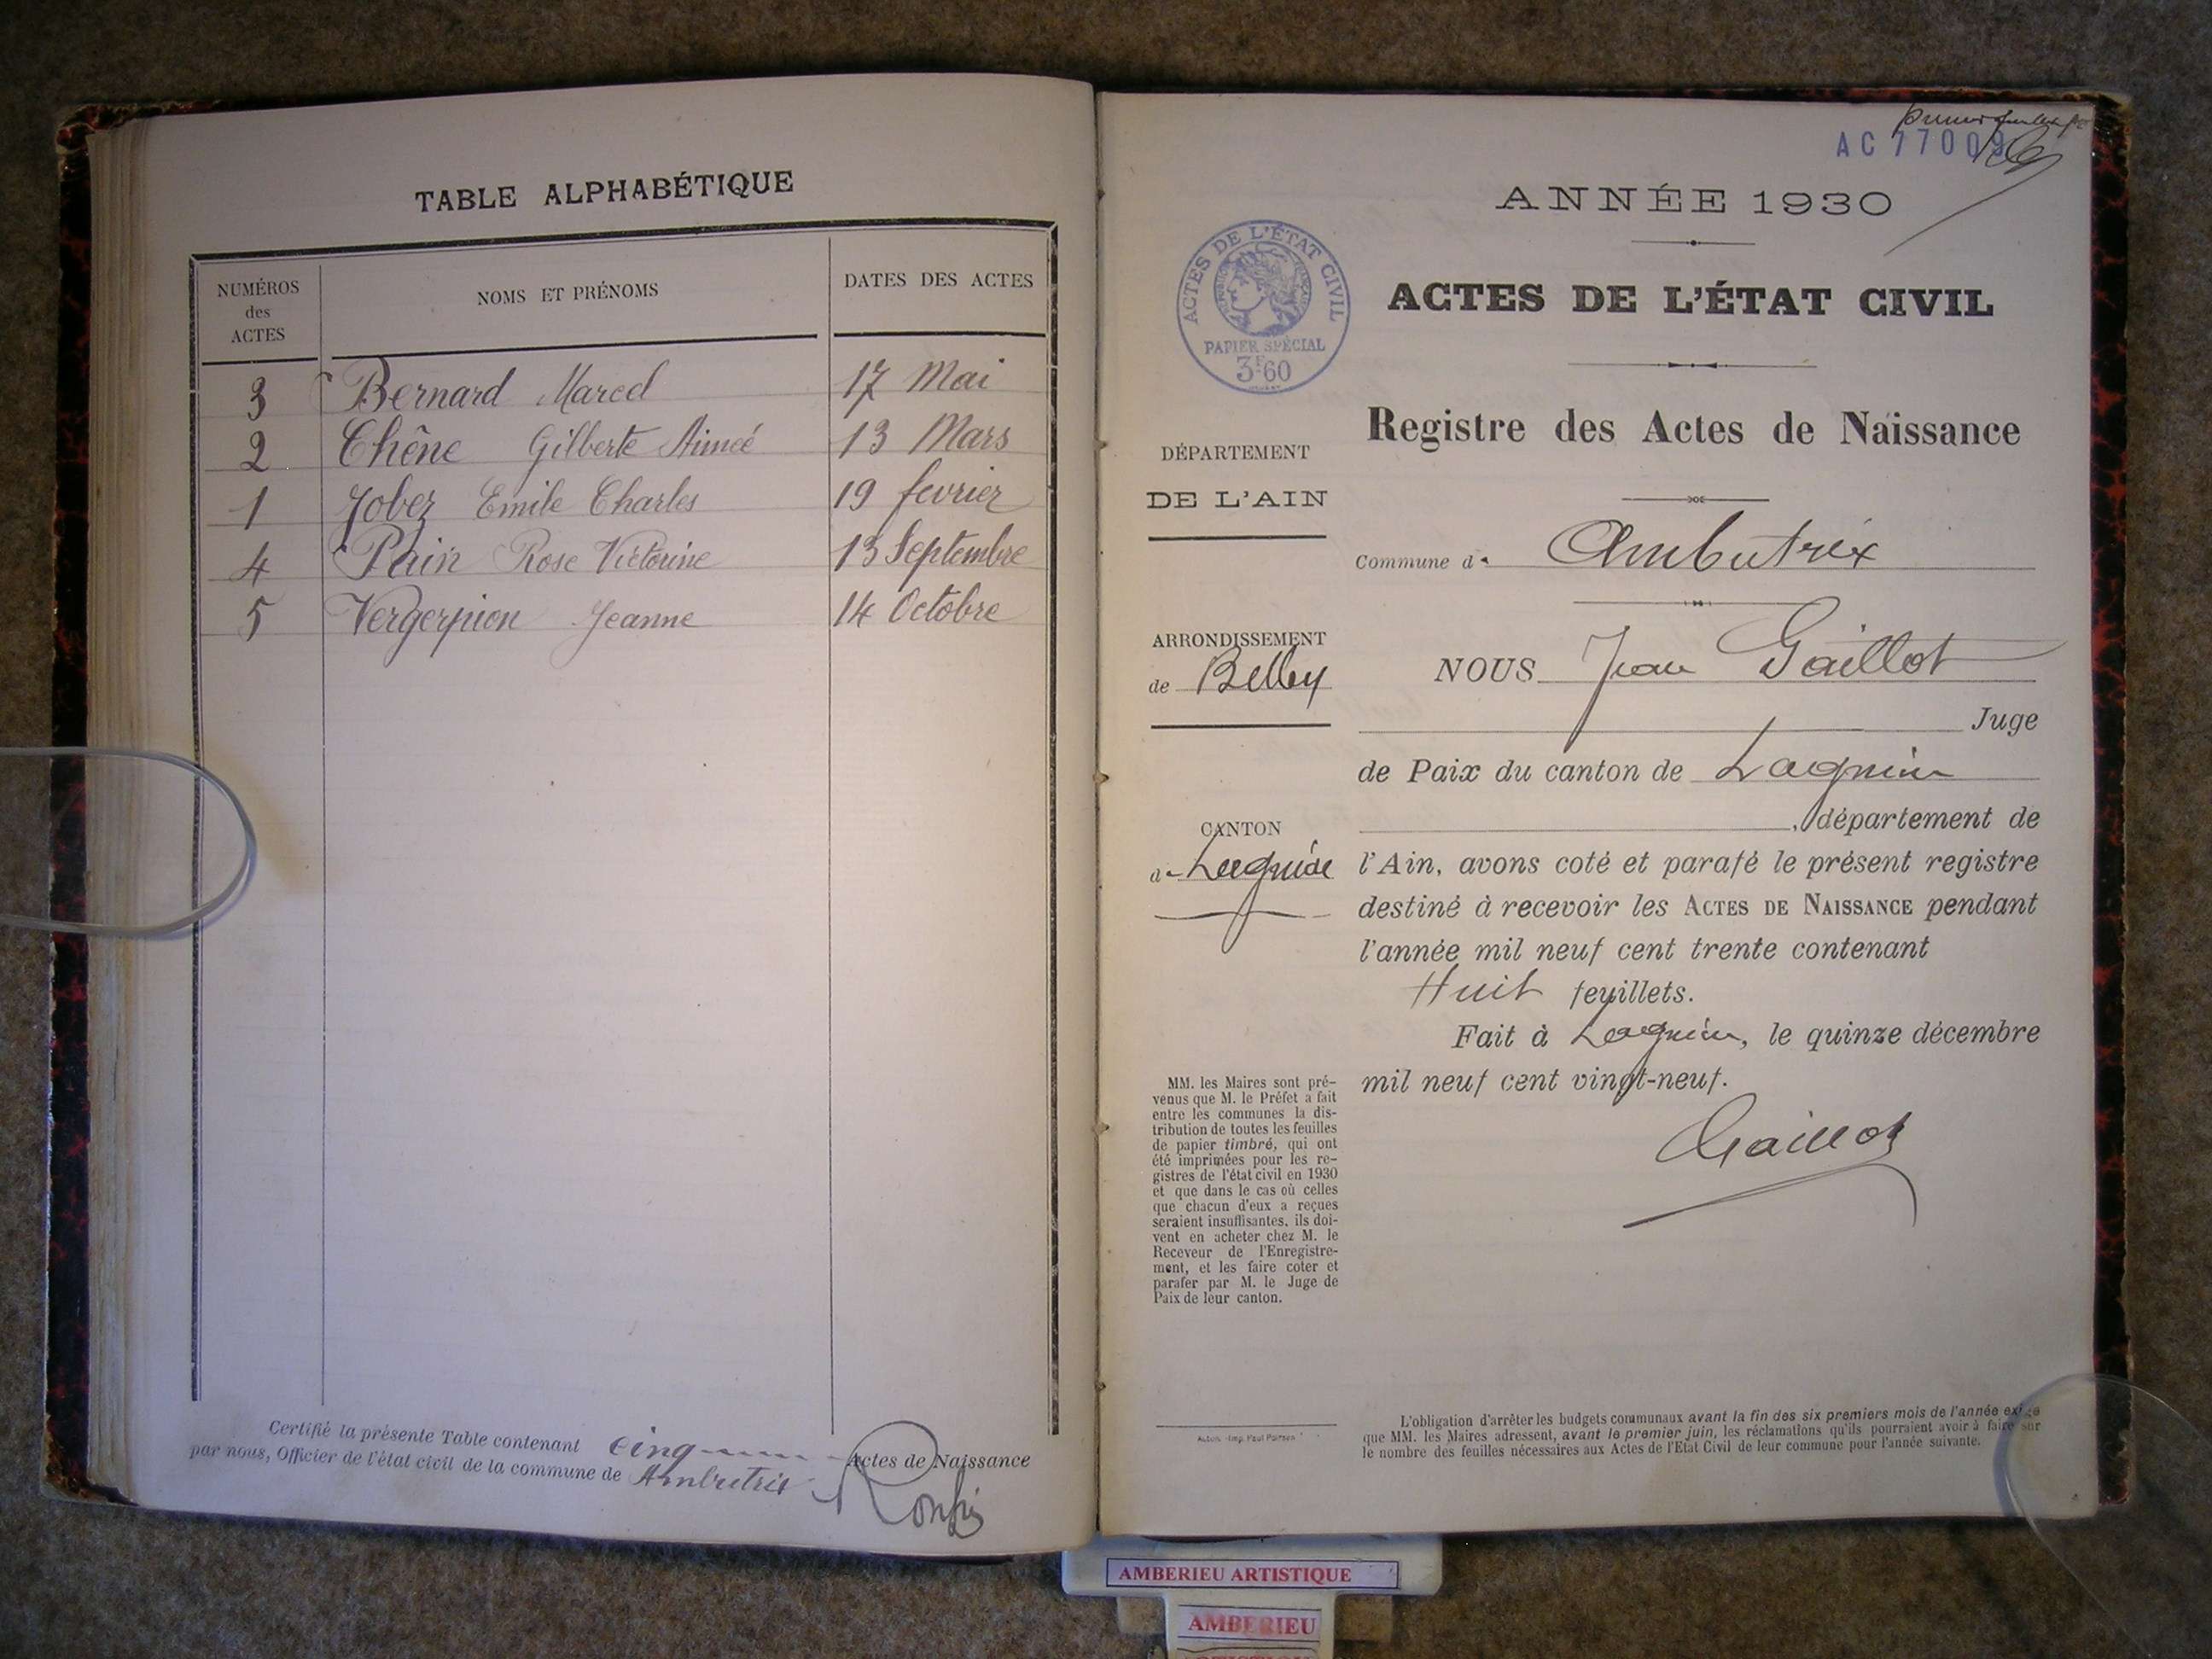 TABLE ALPHABÉTIQUE
NUMÉROS des ACTES NOMS ET PRÉNOMS DATES DES ACTES
3 Bernard Marcel 17 Mai
2 Chêne Gilberte Aimeé 13 Mars
1 Jobez Emile Charles 19 fevrier
4 Pain Rose Victorine 13 Septembre
5 Vergerpion Jeanne 14 Octobre
Certifié la présente Table contenant cinq Actes de Naissance
par nous, Officier de l'état civil de la commune de Ambutrix
premier feuillet
AC 77009
ANNÉE 1930
ACTES DE L'ÉTAT CIVIL
RÉPUBLIQUE FRANÇAISE
PAPIER SPÉCIAL
3F60
ACTES DE L'ÉTAT CIVIL
Registre des Actes de Naissance
DÉPARTEMENT
DE L'AIN
Commune d' Ambutrix
ARRONDISSEMENT
de Belley
CANTON
de Lagnieu
NOUS Jean Gaillot
Juge
de Paix du canton de Lagnieu
, département de
l'Ain, avons coté et parafé le présent registre
destiné à recevoir les ACTES DE NAISSANCE pendant
l'année mil neuf cent trente contenant
Huit feuillets.
Fait à Lagnieu, le quinze décembre
mil neuf cent vingt-neuf.
Gaillot
MM. les Maires sont pré-
venus que M. le Préfet a fait
entre les communes la dis-
tribution de toutes les feuilles
de papier timbré, qui ont
été imprimées pour les re-
gistres de l'état civil en 1930
et que dans le cas où celles
que chacun d'eux a reçues
seraient insuffisantes, ils doi-
vent en acheter chez M. le
Receveur de l'Enregistre-
ment, et les faire coter et
parafer par M. le Juge de
Paix de leur canton.
L'obligation d'arrêter les budgets communaux avant la fin des six premiers mois de l'année exige
que MM. les Maires adressent, avant le premier juin, les réclamations qu'ils pourraient avoir à faire sur
le nombre des feuilles nécessaires aux Actes de l'Etat Civil de leur commune pour l'année suivante.
AMBERIEU ARTISTIQUE
AMBERIEU